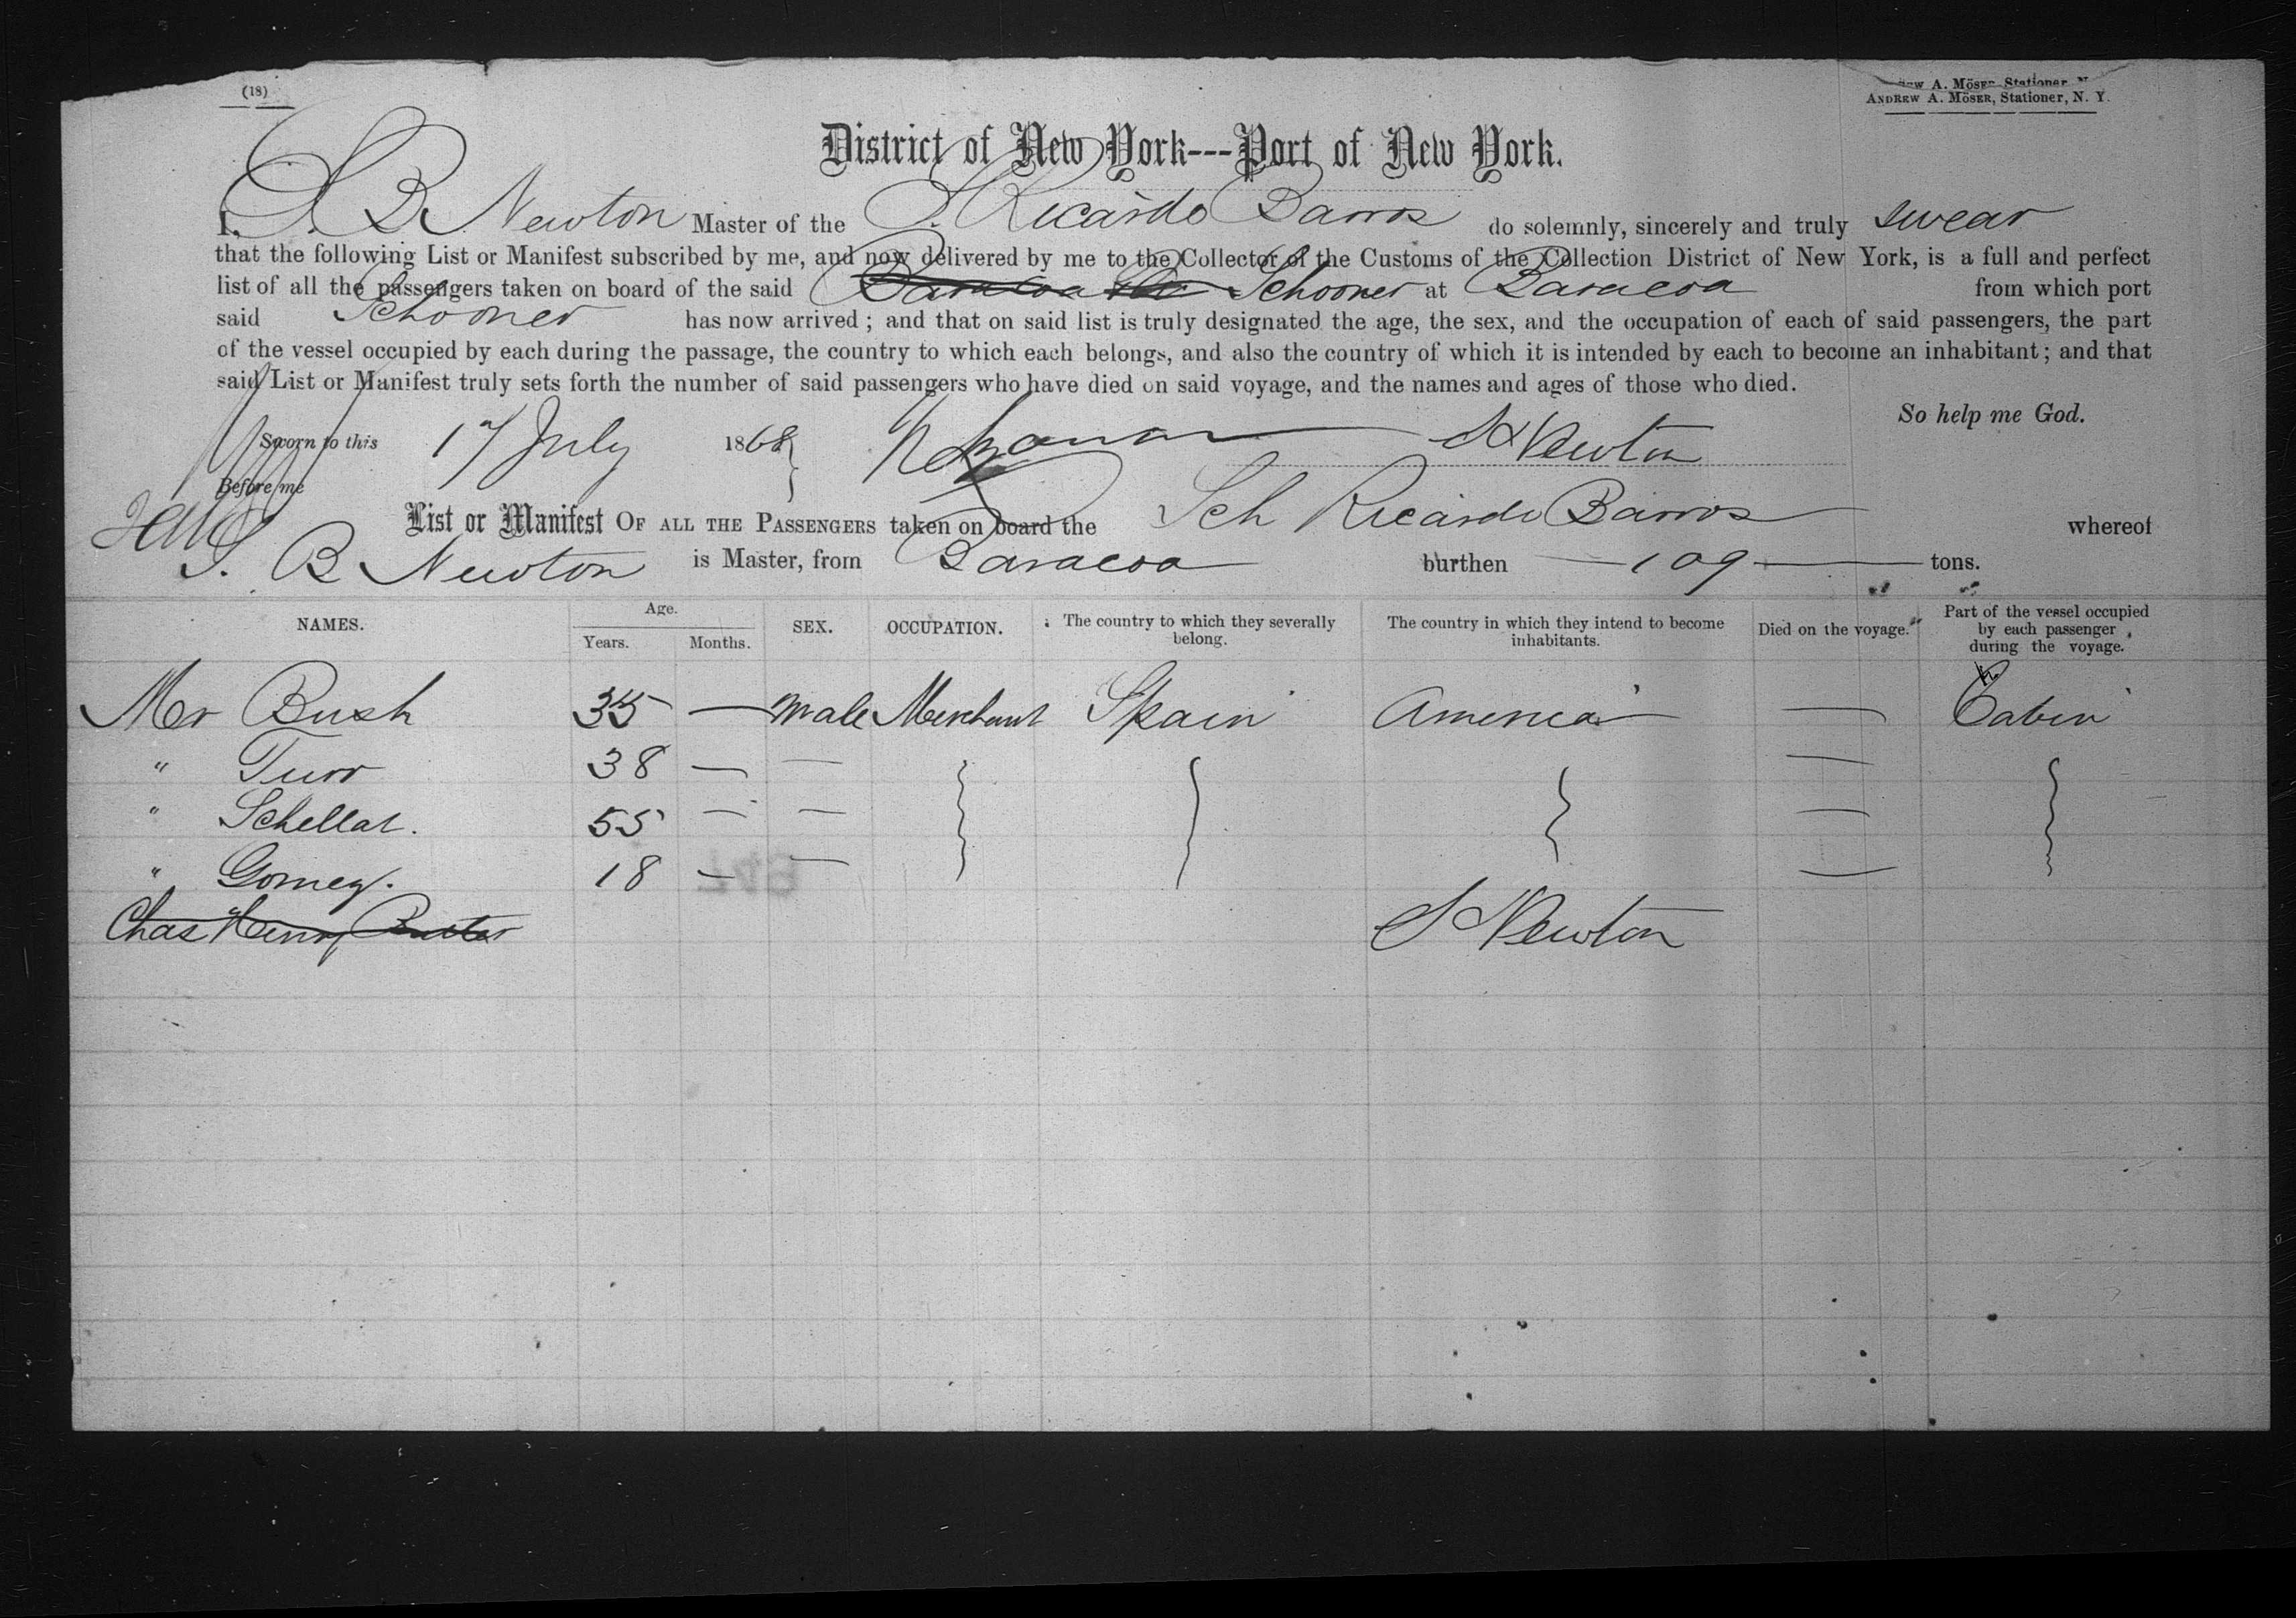 (18)
Andrew A. Möser, Stationer, N. Y.
District of New York---Port of New York.
I, S. B. Newton Master of the S. Ricardo Barros do solemnly, sincerely and truly swear
that the following List or Manifest subscribed by me, and now delivered by me to the Collector of the Customs of the Collection District of New York, is a full and perfect
list of all the passengers taken on board of the said Schooner at Baracoa from which port
said Schooner has now arrived; and that on said list is truly designated the age, the sex, and the occupation of each of said passengers, the part
of the vessel occupied by each during the passage, the country to which each belongs, and also the country of which it is intended by each to become an inhabitant; and that
said List or Manifest truly sets forth the number of said passengers who have died on said voyage, and the names and ages of those who died.
So help me God.
Sworn to this 17 July 1868 S Newton
Before me
List or Manifest OF ALL THE PASSENGERS taken on board the Sch Ricardo Barros whereof
S. B Newton is Master, from Baracoa burthen 109 tons.
NAMES. Age. Years. Months. SEX. OCCUPATION. The country to which they severally belong. The country in which they intend to become inhabitants. Died on the voyage. Part of the vessel occupied by each passenger during the voyage.
Mr Bush 35 — male Merchant Spain America — Cabin
" Turr 38 — — —
" Schellat. 55 — — —
" Gomez. 18 — — —
Chas Henry S Newton